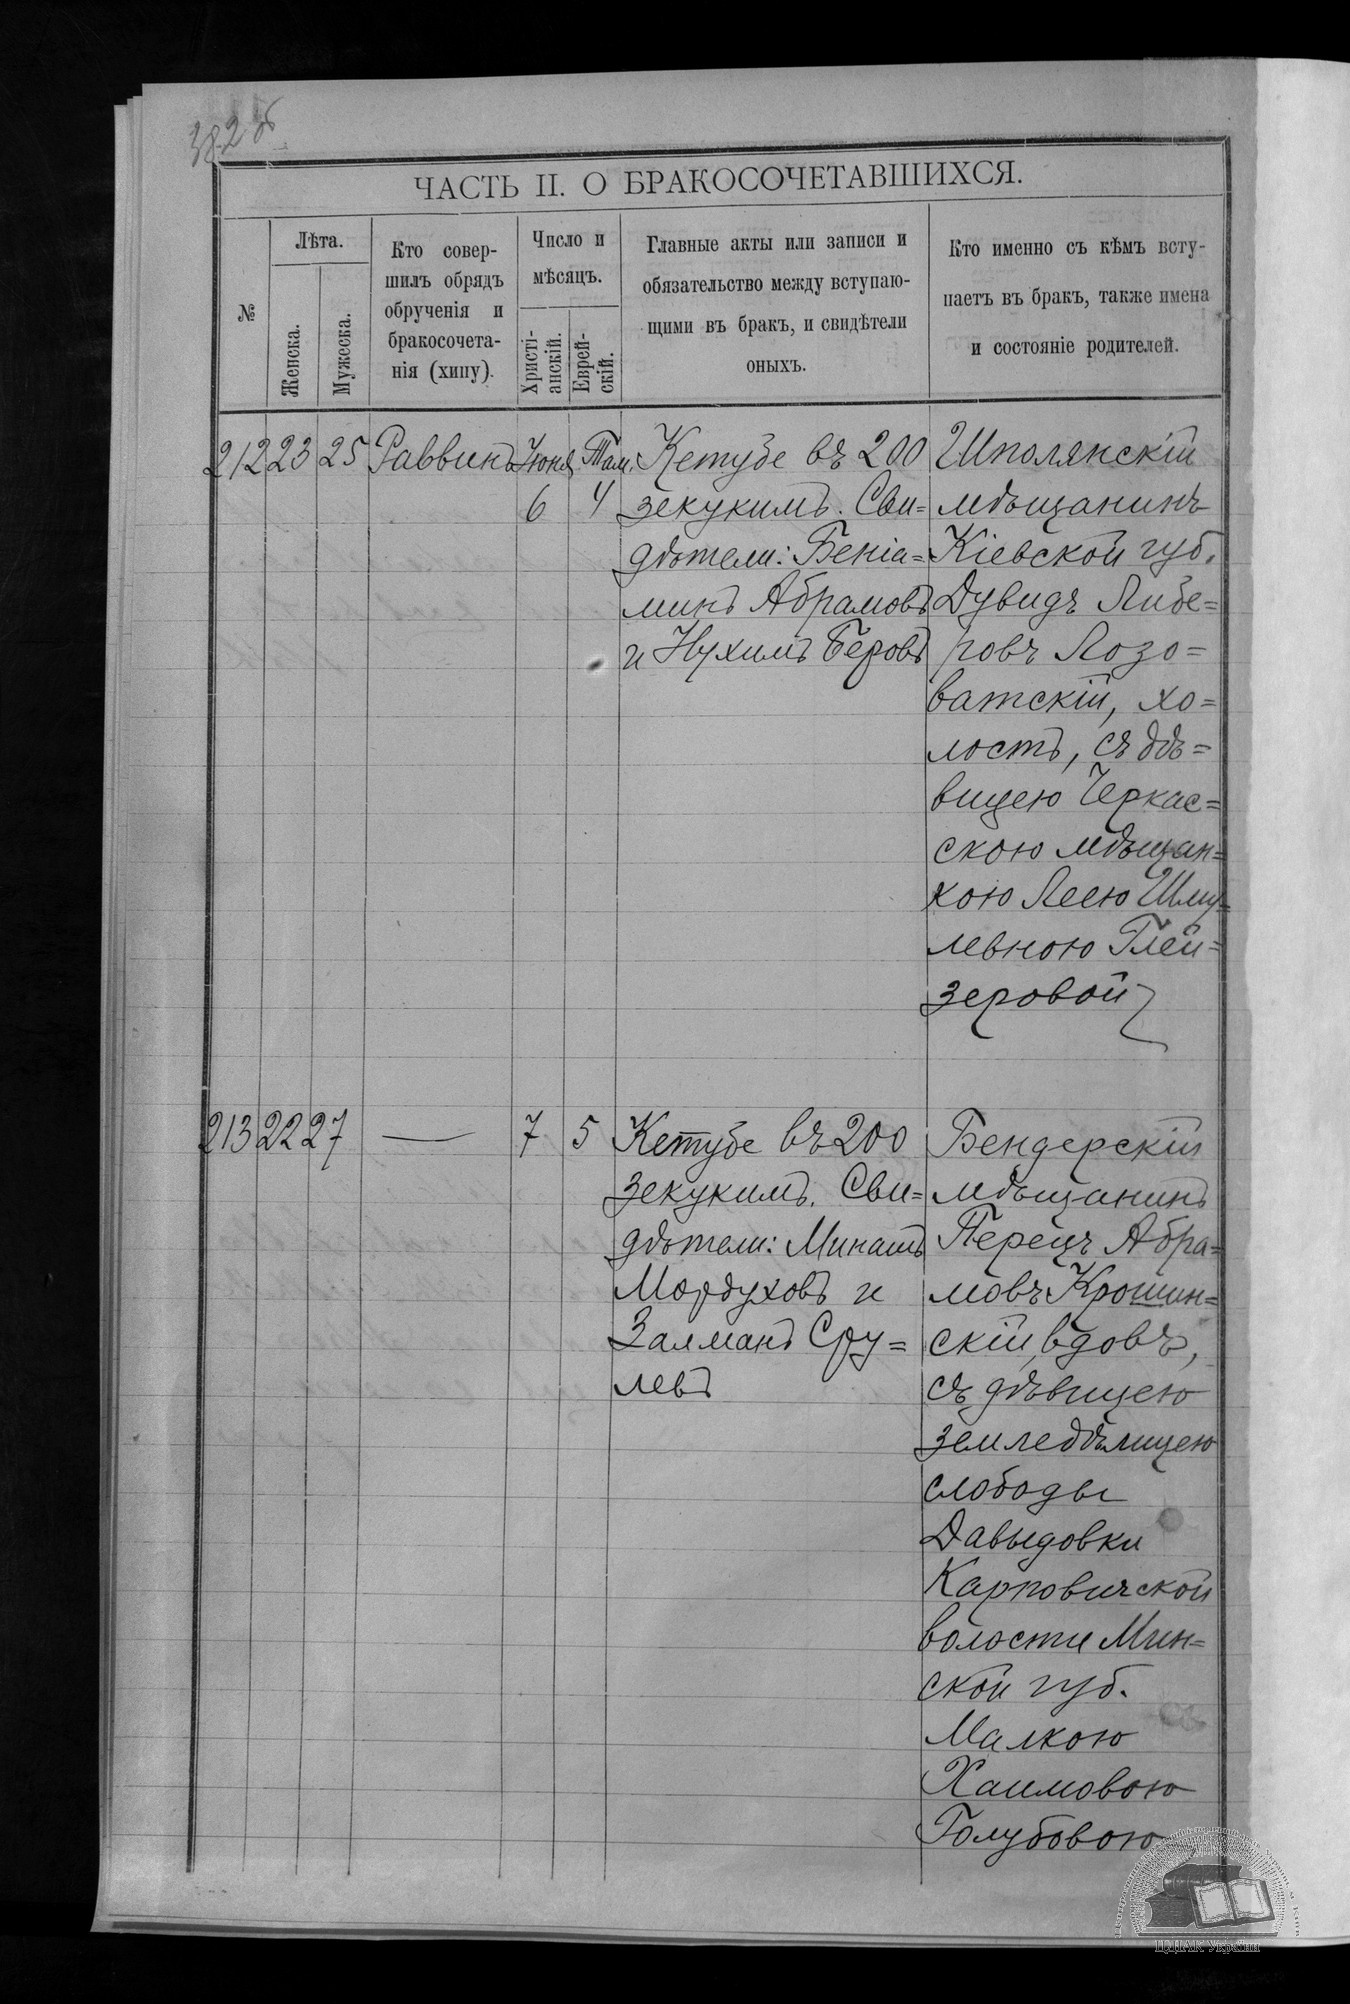 382 об
ЧАСТЬ II. О БРАКОСОЧЕТАВШИХСЯ.
№
Лѣта.
Женска.
Мужеска.
Кто совер-
шилъ обрядъ
обрученія и
бракосочета-
нія (хипу).
Число и
мѣсяцъ.
Христі-
анскій.
Еврей-
скій.
Главные акты или записи и
обязательство между вступаю-
щими въ бракъ, и свидѣтели
оныхъ.
Кто именно съ кѣмъ всту-
паетъ въ бракъ, также имена
и состояніе родителей.
212 23 25 Раввинъ Іюня 6 Там. 4
Кетубе въ 200
зекукимъ. Сви=
дѣтели: Беніа=
минъ Абрамовъ
и Нухимъ Беровъ
Шполянскій
мѣщанинъ
Кіевской губ.
Дувидъ Либе=
ровъ Лозо=
ватскій, хо=
лостъ, съ дѣ=
вицею Черкас=
скою мѣщан=
кою Леею Шму=
левною Глей=
зеровой
213 22 27 — 7 5
Кетубе въ 200
зекукимъ. Сви=
дѣтели: Минашъ
Мордуховъ и
Залманъ Сру=
левъ
Бендерскій
мѣщанинъ
Перецъ Абра=
мовъ Крошин=
скій, вдовъ,
съ дѣвицею
земледѣлицею
слободы
Давыдовки
Карповичской
волости Мин=
ской губ.
Малкою
Хаимовою
Голубовою
ЦДІАК України